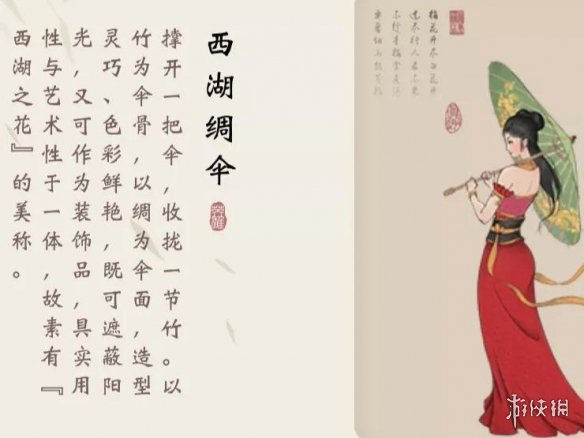 西湖绸伞
撑开一把伞，收拢一节竹。以
竹为伞骨，以绸为伞面，造型
灵巧、色彩鲜艳，既可遮蔽阳
光，又可作为装饰品，具实用
性与艺术性于一体，故素有『
西湖之花』的美称。
游侠网